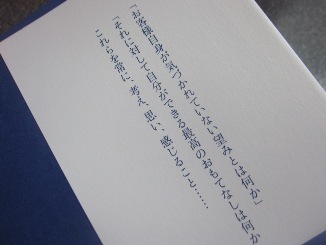 「お客様自身が気づかれていない望みとは何か」
「それに対して自分ができる最高のおもてなしは何か
これらを常に、考え、思い、感じること……